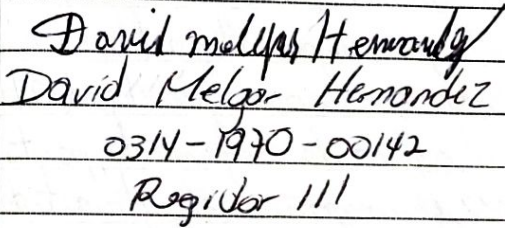 David Melgar Hernandez
David Melgar Hernandez
0314-1970-00142
Regidor III